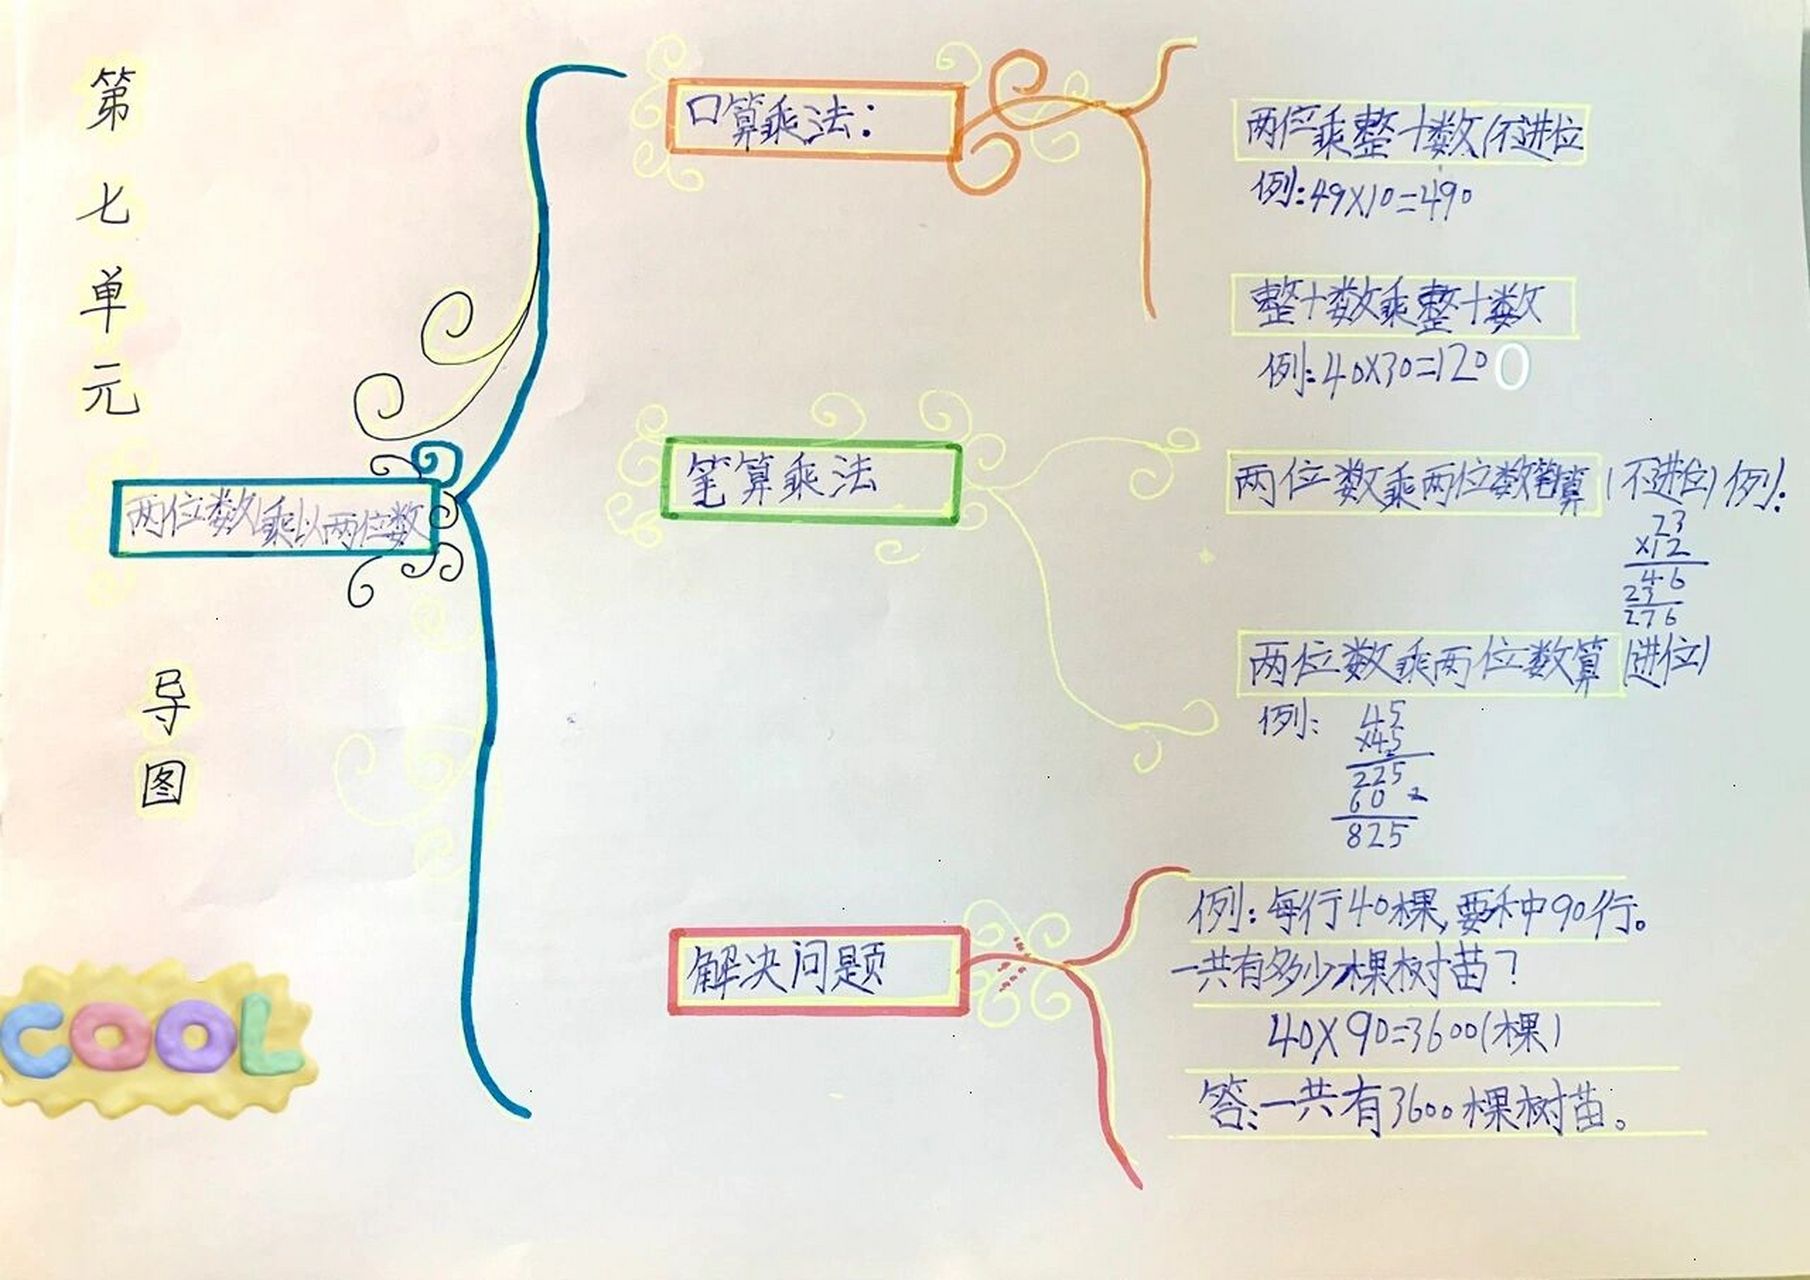 第七单元
导图
两位数乘以两位数
COOL
口算乘法：
两位乘整十数(不进位
例:49×10=490
整十数乘整十数
例:40×30=1200
笔算乘法
两位数乘两位数笔算(不进位)例:
23
×12
46
23
276
两位数乘两位数算(进位)
例:
45
×45
225
60
825
解决问题
例:每行40棵,要种90行。
一共有多少棵树苗?
40×90=3600(棵)
答:一共有3600棵树苗。